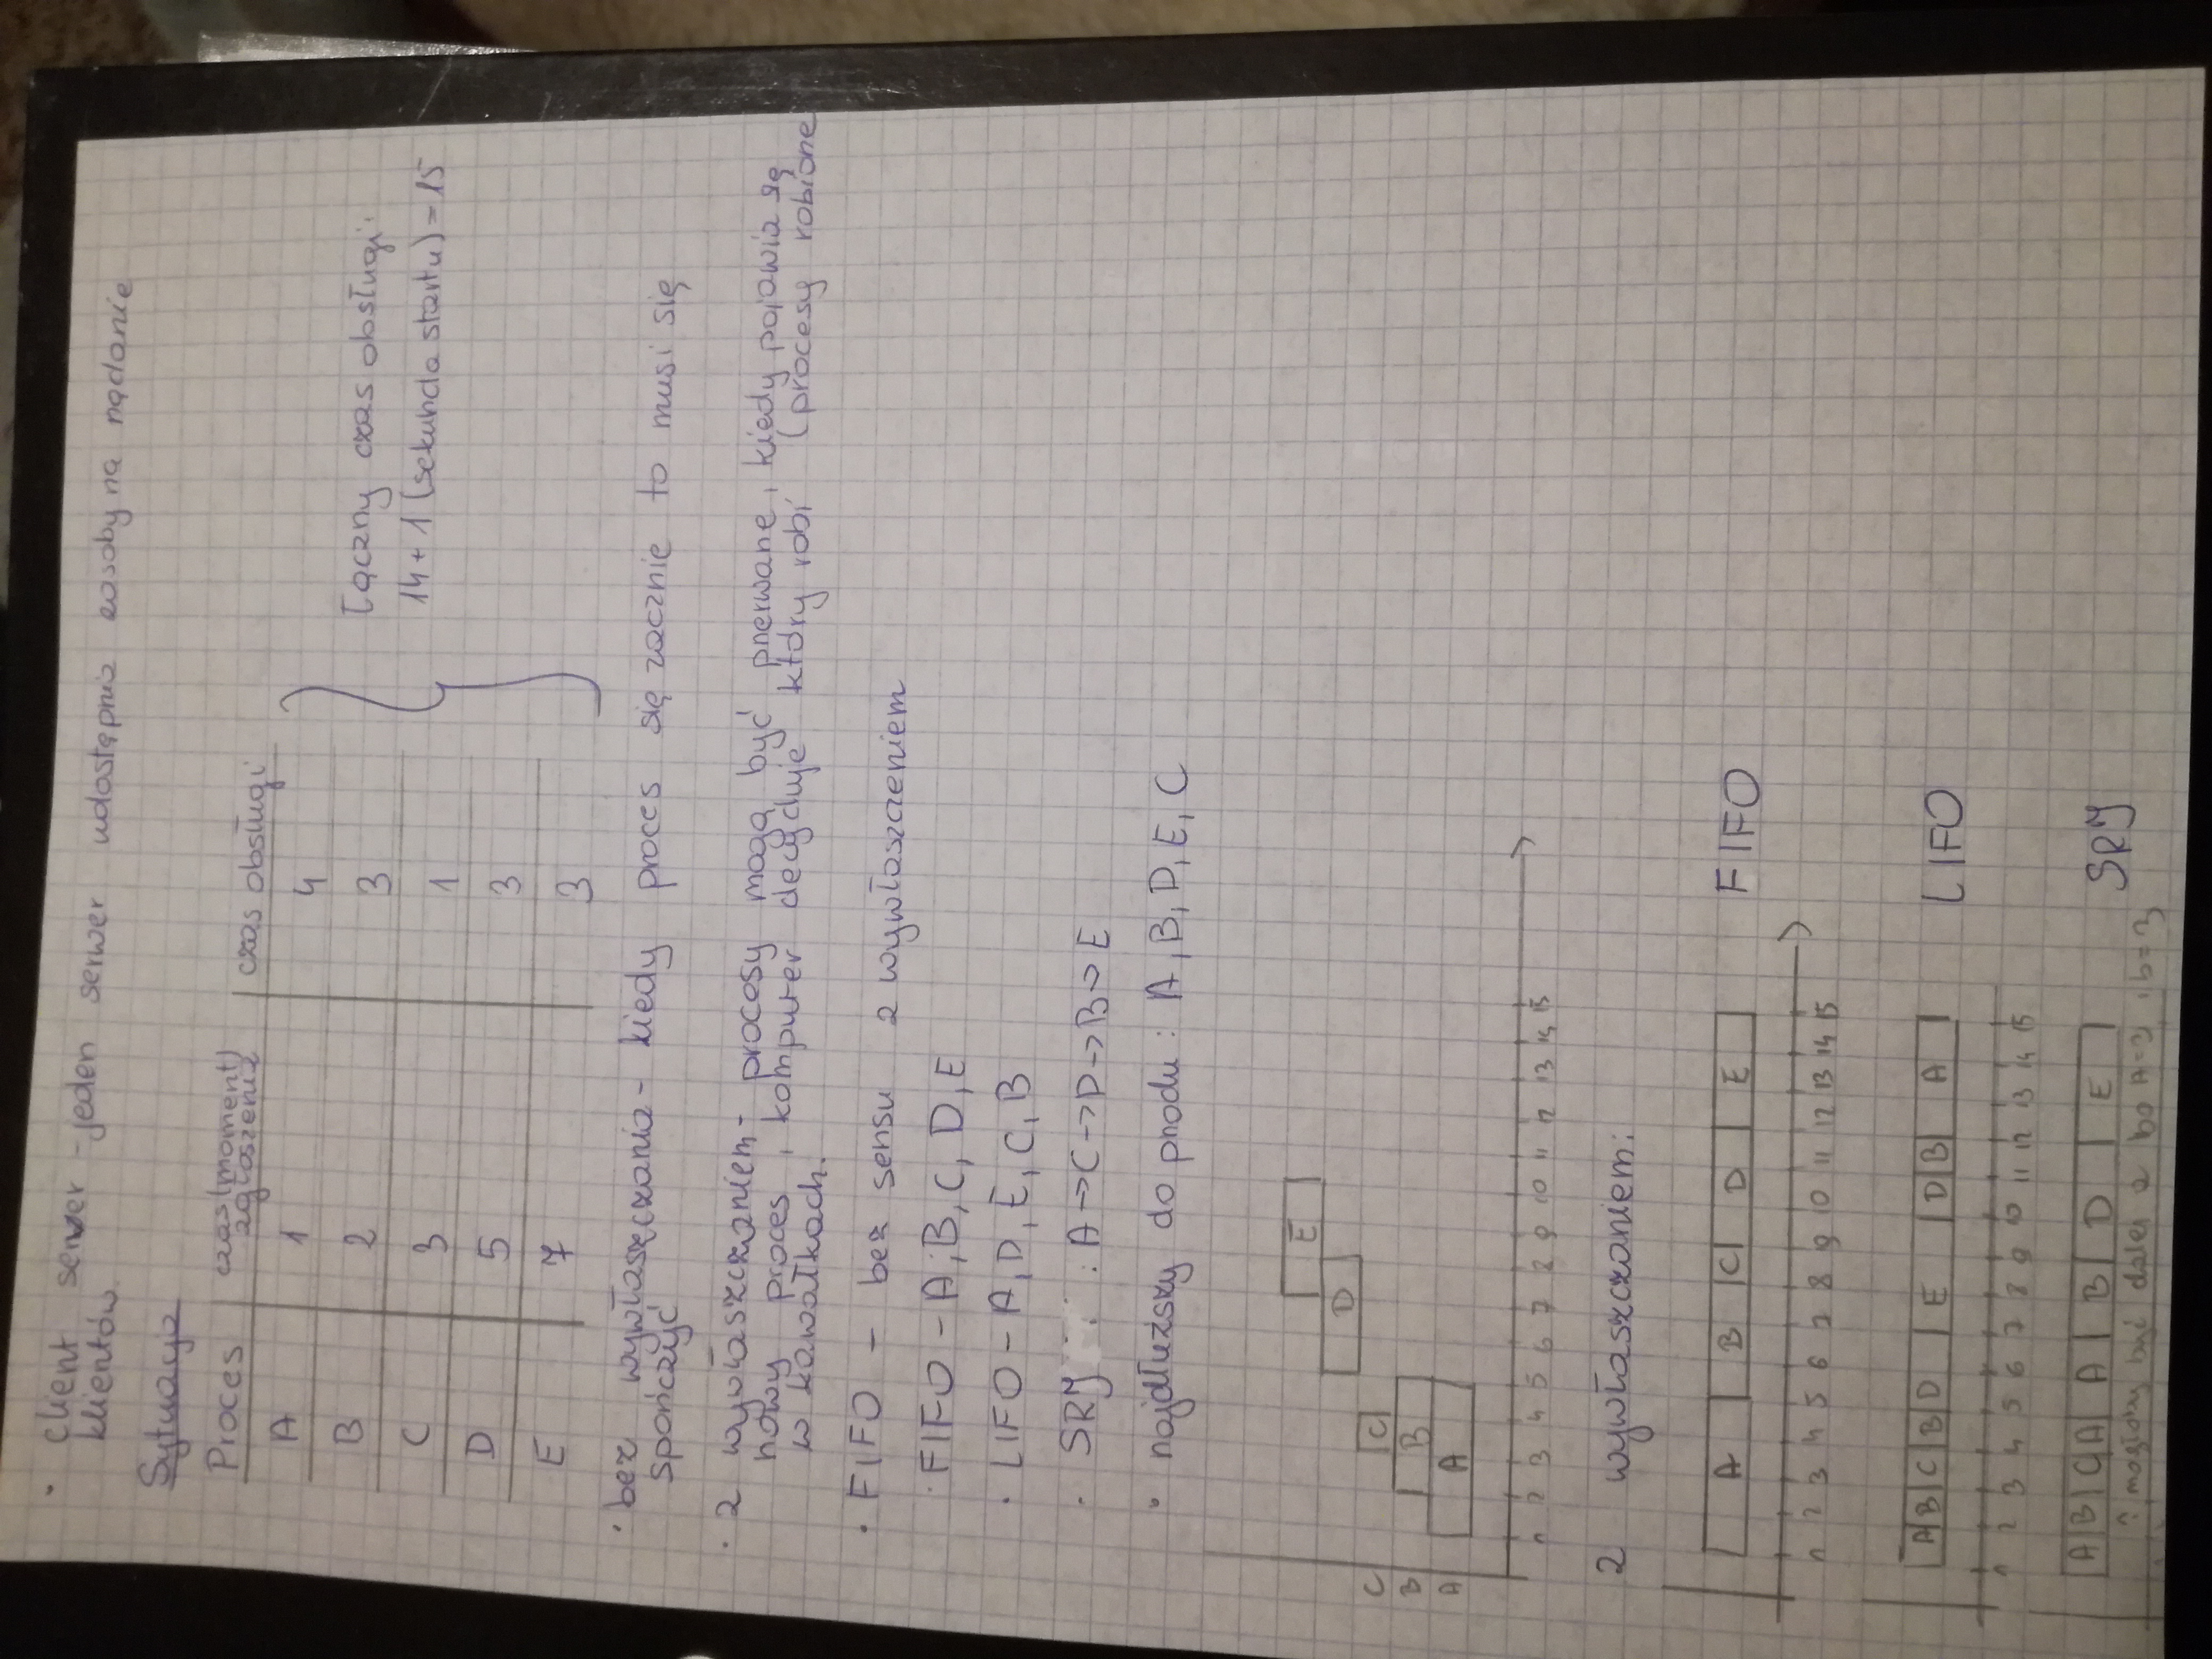 · Client serwer - jeden serwer udostępnia zasoby na żądanie
klientów.
Sytuacja
Proces czas (moment) zgłoszenia czas obsługi
A 1 4
B 2 3
C 3 1
D 5 3
E 7 3
Łączny czas obsługi:
14 + 1 (sekunda startu) = 15
· bez wywłaszczania - kiedy proces się zacznie to musi się
skończyć
· z wywłaszczaniem - procesy mogą być przerwane, kiedy pojawia się
nowy proces, komputer decyduje który robi (procesy robione
w kawałkach.
· FIFO - bez sensu z wywłaszczeniem
· FIFO - A, B, C, D, E
· LIFO - A, D, E, C, B
· SRJ : A -> C -> D -> B -> E
· najdłuższy do przodu : A, B, D, E, C
E
D
C C
B B
A A
1 2 3 4 5 6 7 8 9 10 11 12 13 14 15
z wywłaszczaniem:
A B C D E FIFO
1 2 3 4 5 6 7 8 9 10 11 12 13 14 15
A B C B D E D B A LIFO
1 2 3 4 5 6 7 8 9 10 11 12 13 14 15
A B C A A B D E SRJ
mógłby być dalej a bo A=3 , b=3